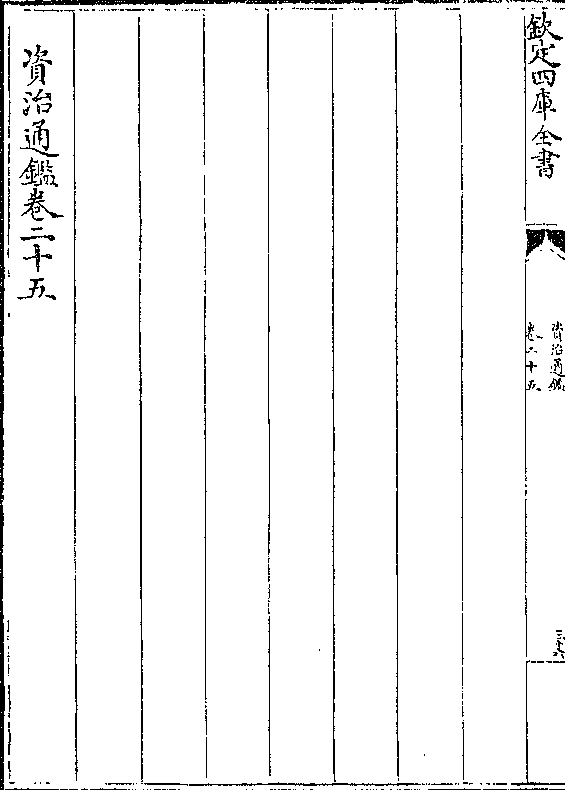 欽定四庫全書
資治通鑑
卷二十五
三十六
資治通鑑卷二十五